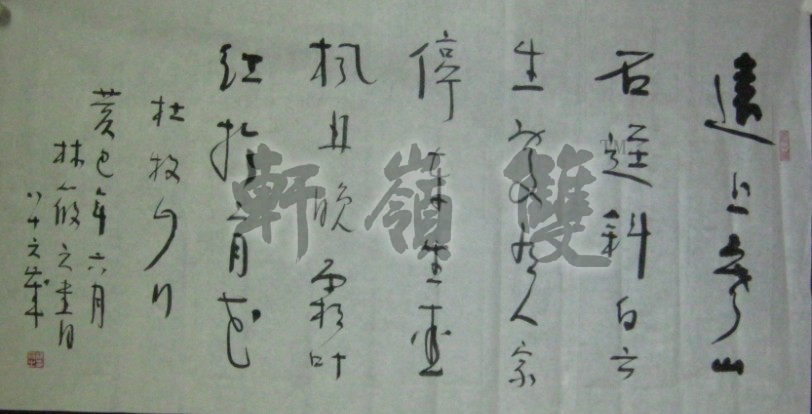 遠上寒山
石逕斜白云
生處有人家
停車坐愛
楓林晚霜叶
紅於二月花
杜牧山行
癸巳年六月
林筱之書
八十六歲
雙嶺軒